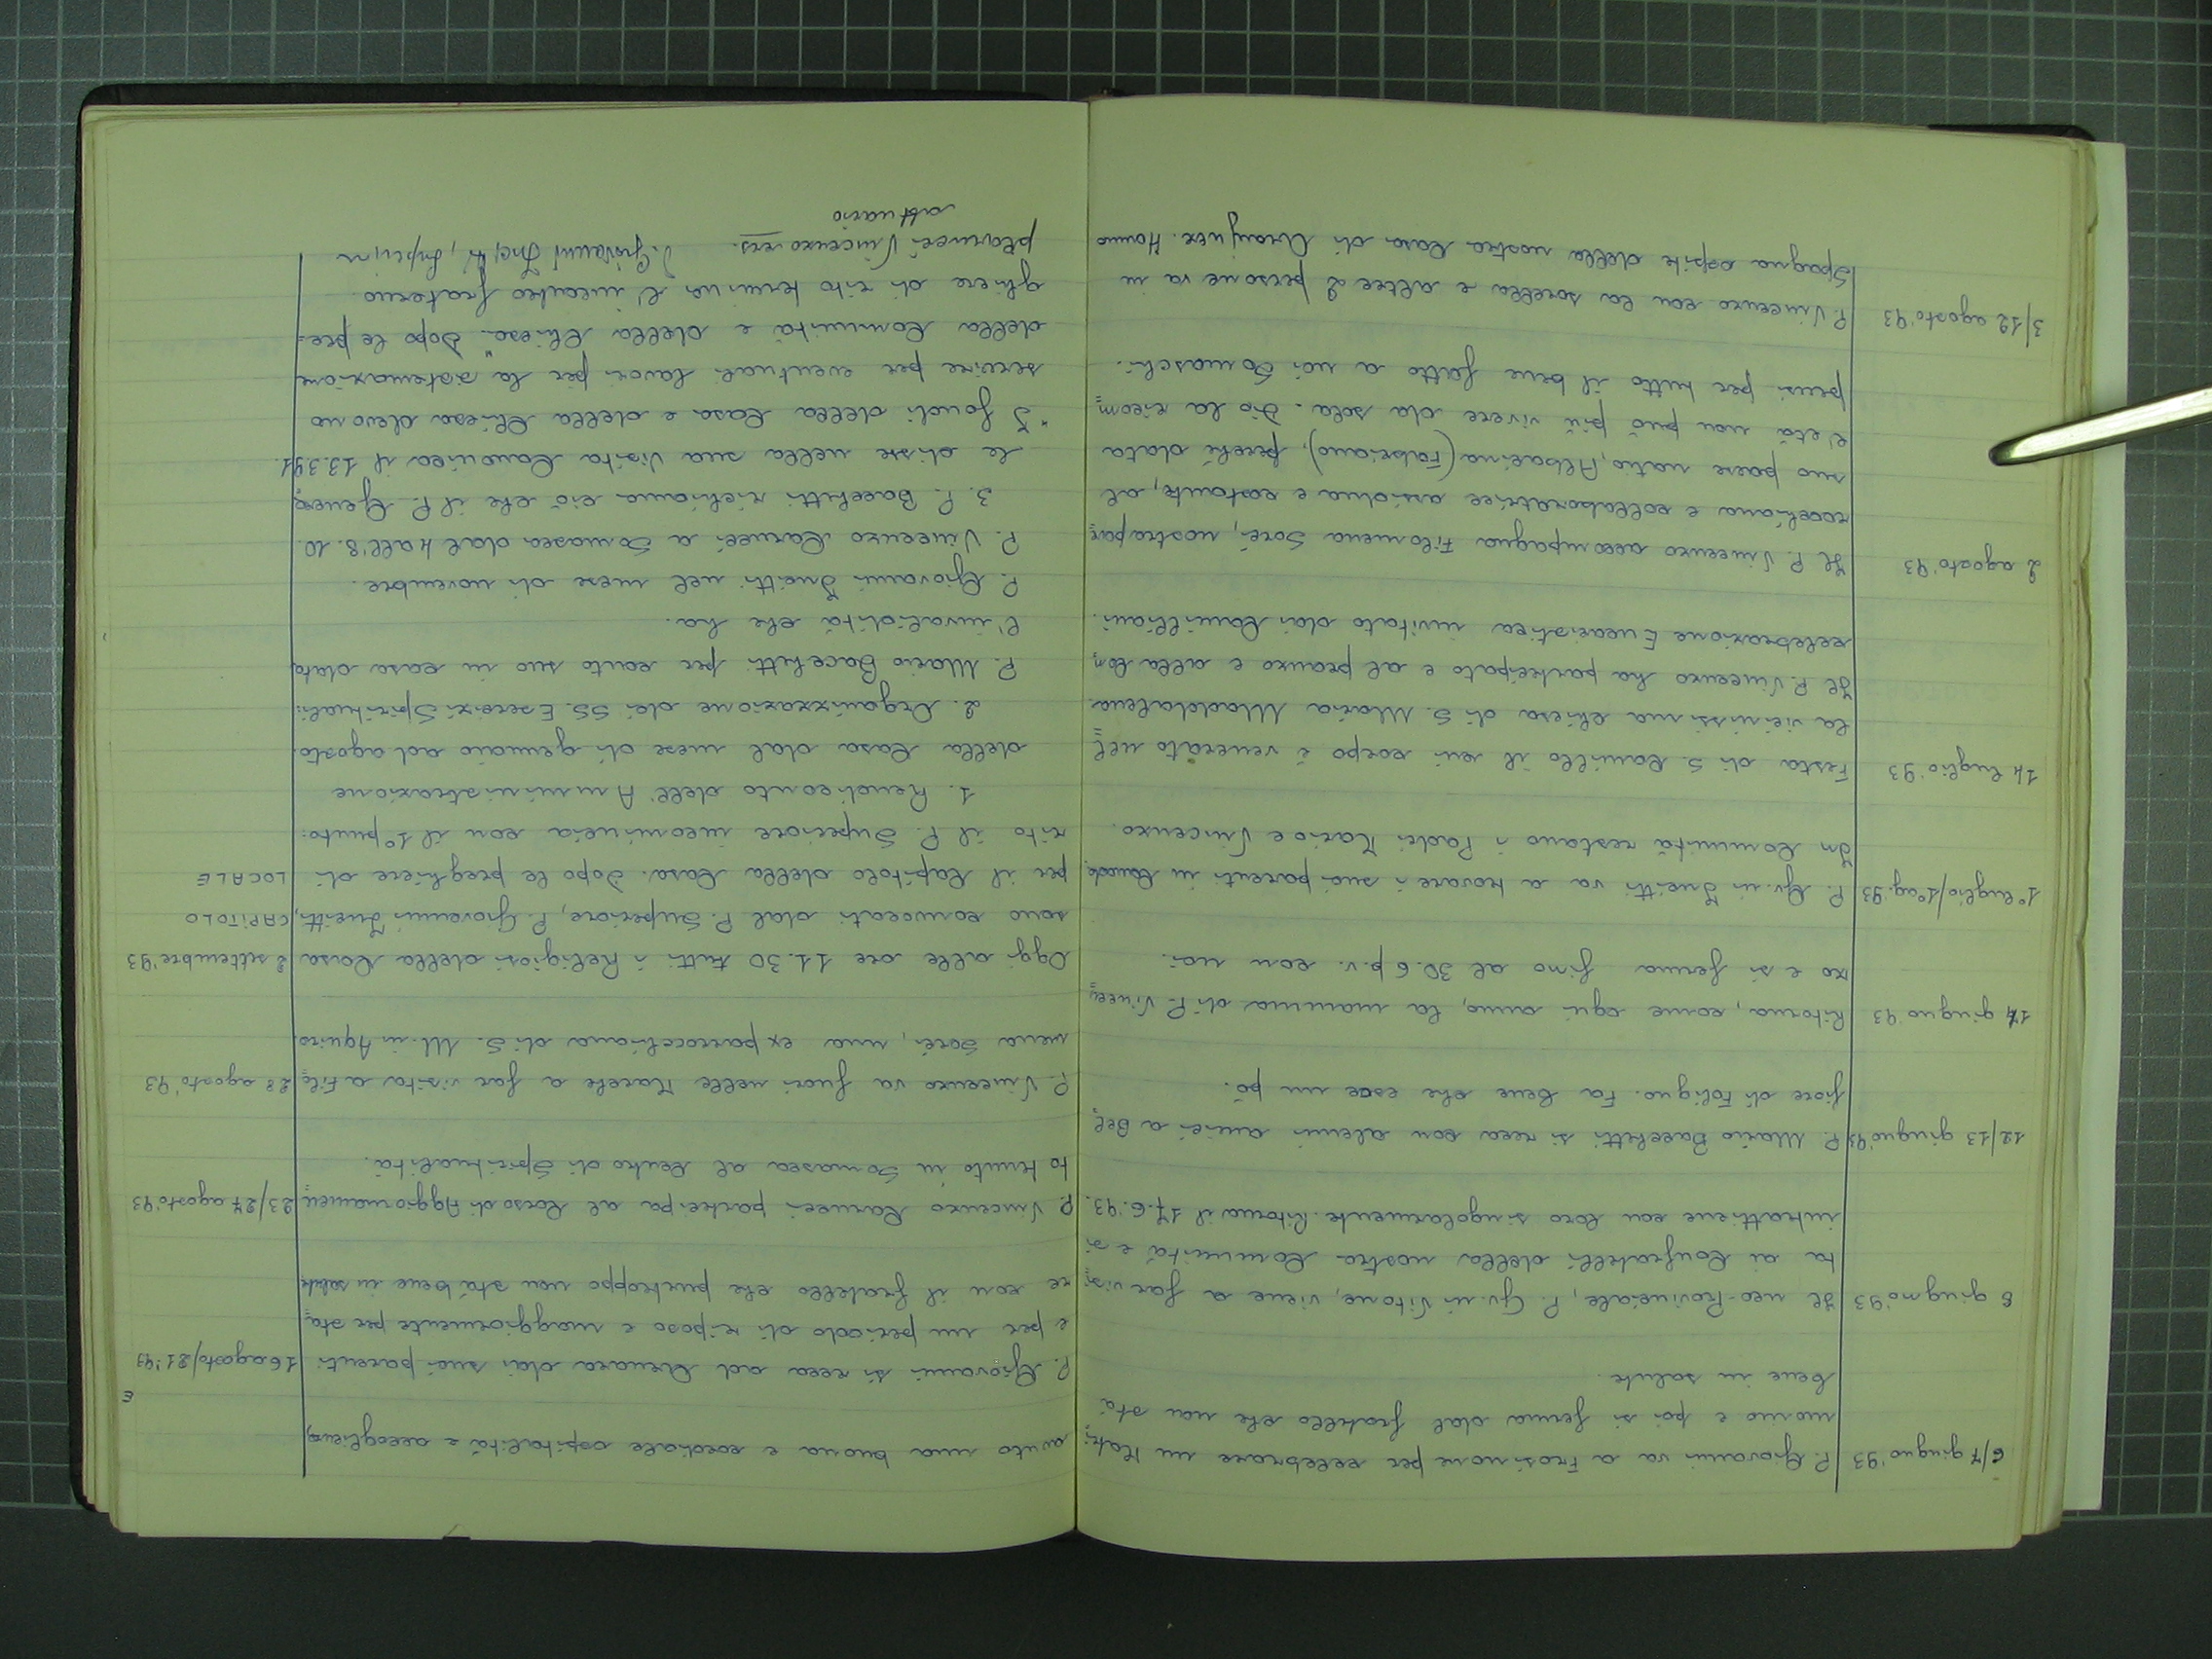 6/7 giugno '93 P. Giovanni va a Frosinone per celebrare un Matri=
monio e poi si ferma dal fratello che non stà
bene in salute.
8 giugno '93 Il neo-Provinciale, P. Gv.ni Vitone, viene a far visi=
ta ai Confratelli della nostra Comunità e si
intrattiene con loro singolarmente. Ritorna il 17.6.'93.
12/13 giugno '93 P. Mario Bacchetti si reca con alcuni amici a Bel=
fiore di Foligno. Fa bene che esce un pò.
14 giugno '93 Ritorna, come ogni anno, la mamma di P. Vincen=
zo e si ferma fino al 30.6 p.v. con noi.
1° luglio/1° ag. '93 P. Gv.ni Inetti va a trovare i suoi parenti in Canada.
In Comunità restano i Padri Mario e Vincenzo.
14 luglio '93 Festa di S. Camillo il cui corpo è venerato nel=
la vicinissima chiesa di S. Maria Maddalena.
Il P. Vincenzo ha partecipato e al pranzo e alla Con=
celebrazione Eucaristica invitato dai Camilliani.
2 agosto '93 Il P. Vincenzo accompagna Filomena Sorè, nostra par=
rocchiana e collaboratrice assidua e costante, al
suo paese natio, Albacina (Fabriano), perché data
l'età non può più vivere da sola. Dio la ricom=
pensi per tutto il bene fatto a noi Somaschi.
3/12 agosto '93 P. Vincenzo con la sorella e altre 2 persone va in
Spagna ospite della nostra Casa di Aranjuez. Hanno
avuto una buona e cordiale ospitalità e accoglienza.
16 agosto/21 '93 P. Giovanni si reca ad Arnara dai suoi parenti
e per un periodo di riposo e maggiormente per sta=
re con il fratello che purtroppo non stà bene in salute
23/27 agosto '93 P. Vincenzo Carucci partecipa al Corso di Aggiornamen=
to tenuto in Somasca al Centro di Spiritualità.
28 agosto '93 P. Vincenzo va fuori nelle Marche a far visita a Filo=
mena Sorè, una ex parrocchiana di S. M. in Aquiro.
2 settembre '93 Oggi alle ore 11.30 tutti i Religiosi della Casa
CAPITOLO sono convocati dal P. Superiore, P. Giovanni Inetti,
LOCALE per il Capitolo della Casa. Dopo le preghiere di
rito il P. Superiore incomincia con il 1° punto:
1. Rendiconto dell'Amministrazione
della Casa dal mese di gennaio ad agosto.
2. Organizzazione dei SS. Esercizi Spirituali:
P. Mario Bacchetti per conto suo in casa data
l'invalidità che ha.
P. Giovanni Inetti nel mese di novembre.
P. Vincenzo Carucci a Somasca dal 4 all'8.10.
3. P. Bacchetti richiama ciò che il P. Genera=
le disse nella sua visita Canonica il 13.3.91.
"I fondi della Casa e della Chiesa devono
servire per eventuali lavori per la sistemazione
della Comunità e della Chiesa". Dopo le pre=
ghiere di rito termina l'incontro fraterno.
attuario